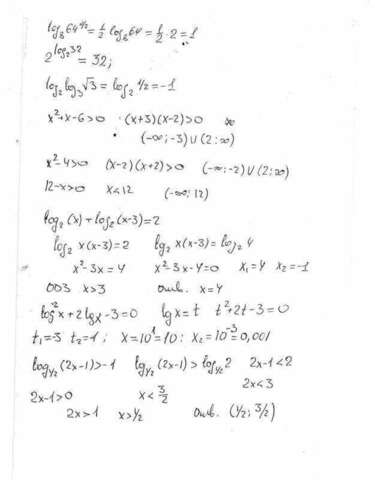 log₈64^(1/2) = 1/2 log₈64 = 1/2 · 2 = 1
2^(log₂32) = 32;
log₂log₃√3 = log₂ 1/2 = -1
x²+x-6>0 (x+3)(x-2)>0 ∞
(-∞;-3)∪(2;∞)
x²-4>0 (x-2)(x+2)>0 (-∞;-2)∪(2;∞)
12-x>0 x<12 (-∞;12)
log₂(x)+log₂(x-3)=2
log₂ x(x-3)=2 log₂ x(x-3)=log₂4
x²-3x=4 x²-3x-4=0 x₁=4 x₂=-1
ОДЗ x>3 отв. x=4
log²x+2lgx-3=0 lgx=t t²+2t-3=0
t₁=-3 t₂=1; x=10¹=10; x₂=10⁻³=0,001
log₁/₂(2x-1)>-1 log₁/₂(2x-1)>log₁/₂2 2x-1<2
2x<3
2x-1>0 x<3/2
2x>1 x>1/2 отв. (1/2; 3/2)